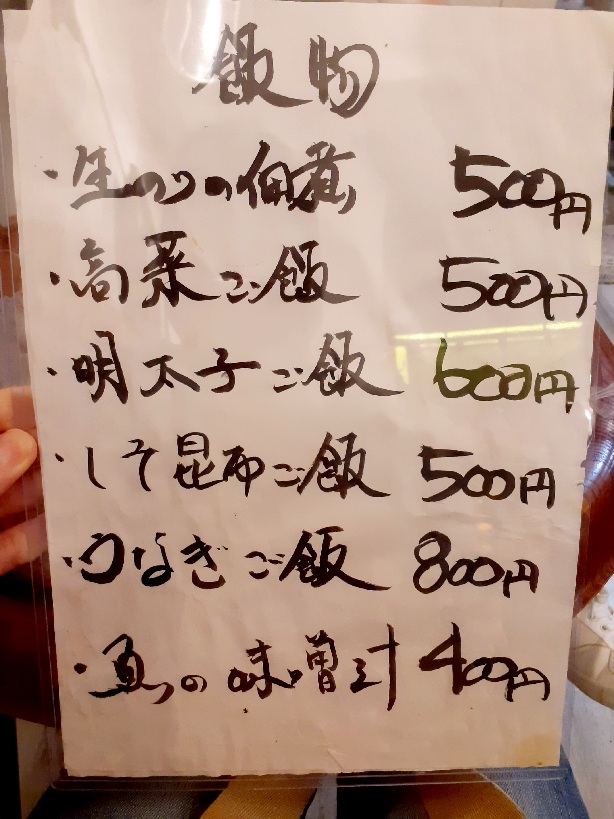 飯物
・生のりの佃煮 500円
・高菜ご飯 500円
・明太子ご飯 600円
・しそ昆布ご飯 500円
・うなぎご飯 800円
・魚の味噌汁 400円